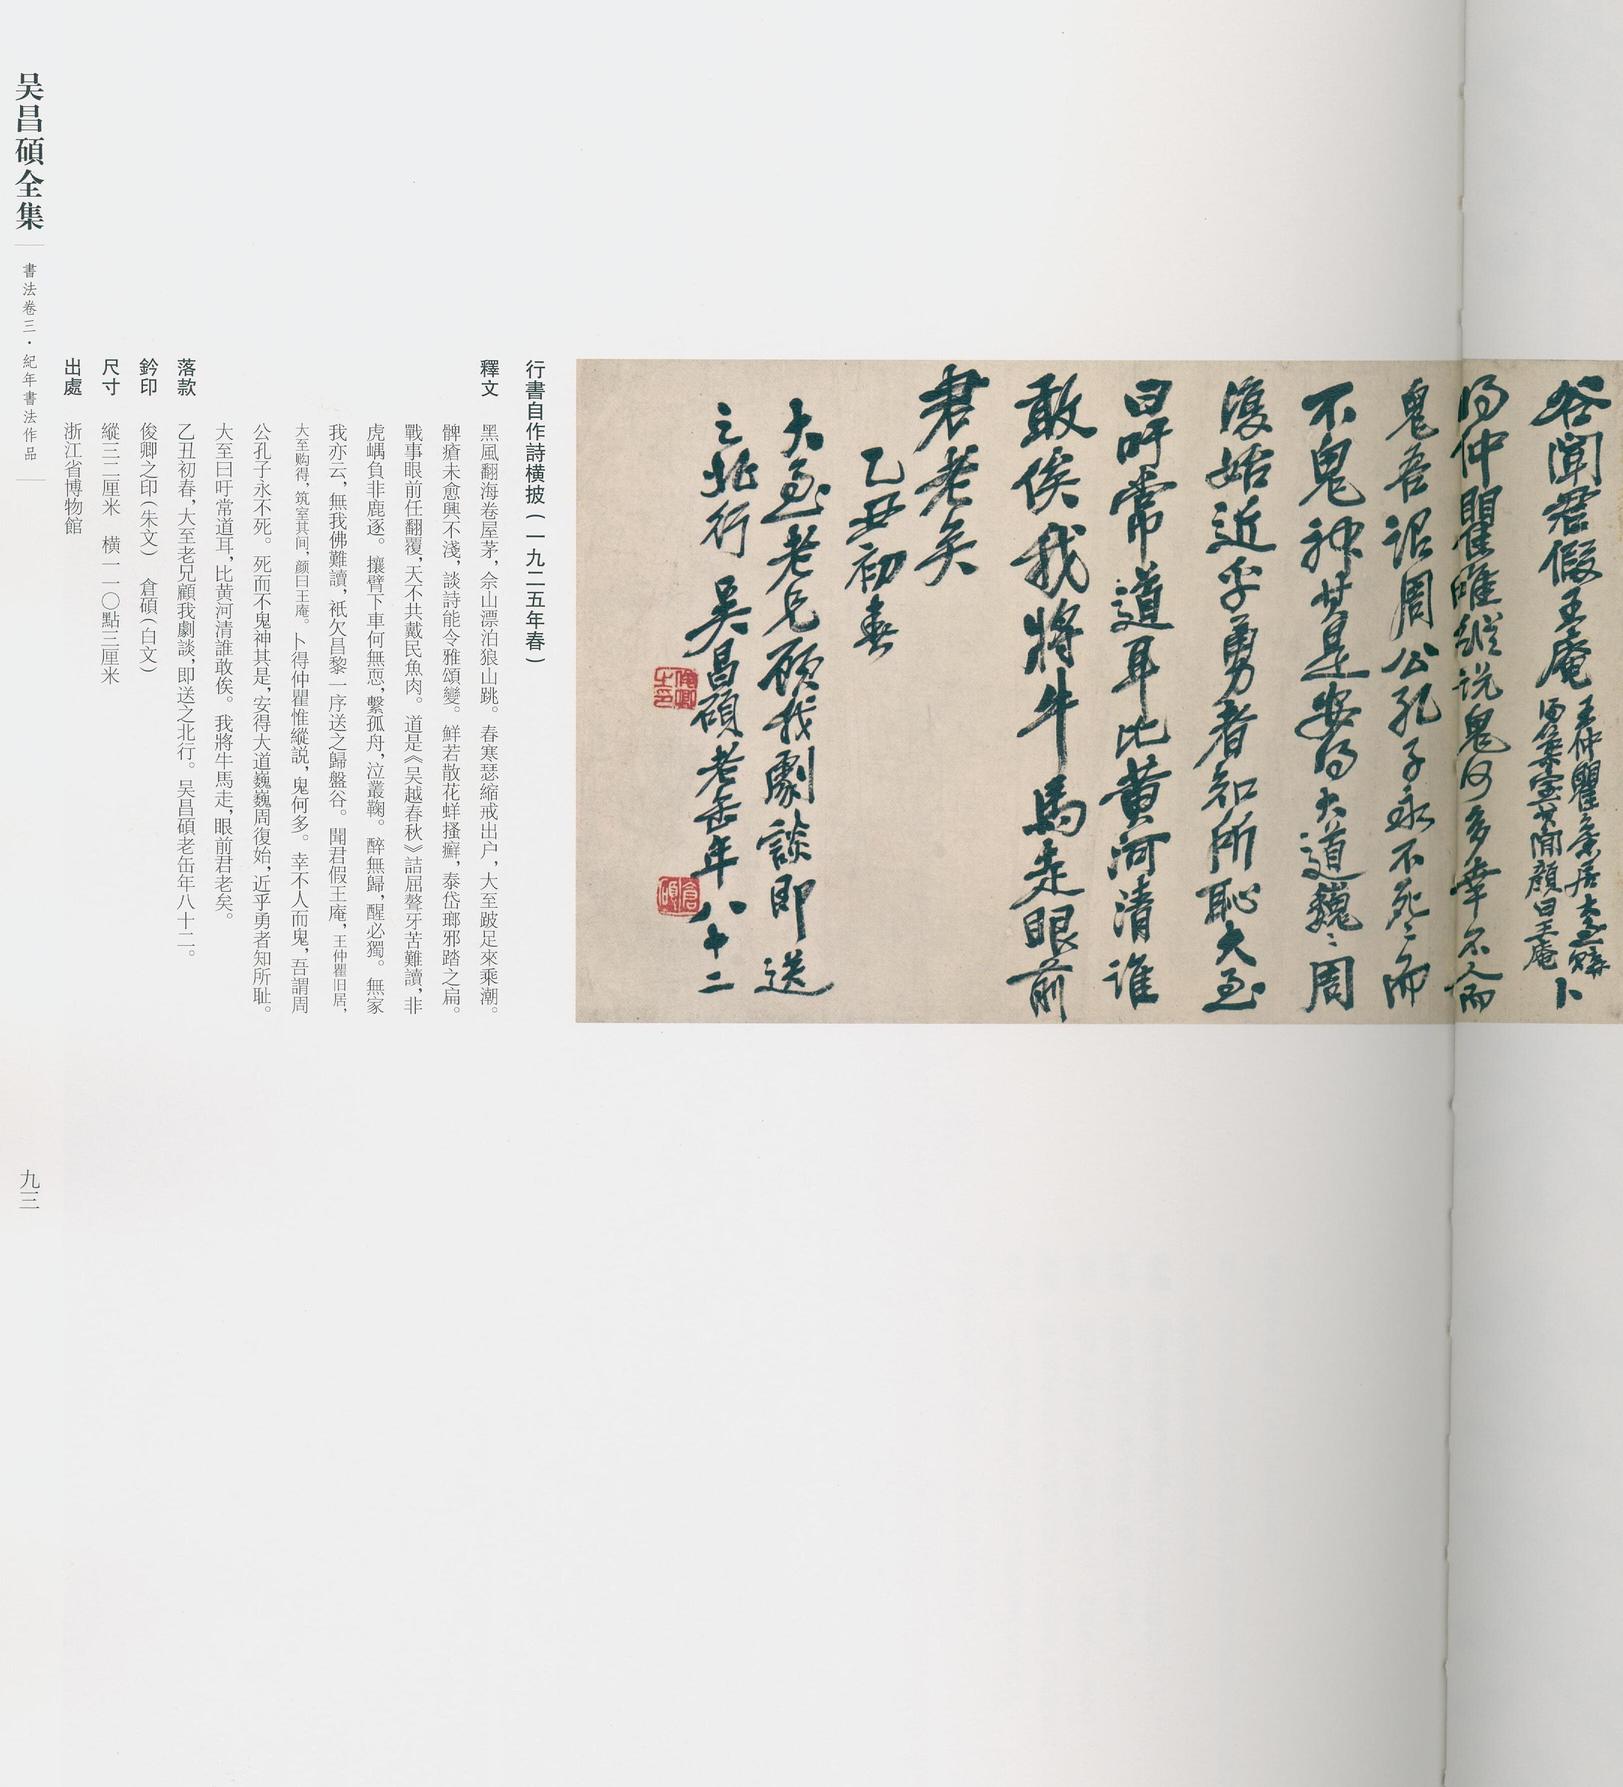 谷聞君假王庵
王仲瞿舊居大至購
得築室其間顏曰王庵
卜
得仲瞿唯縱説鬼何多幸不人而
鬼吾謂周公孔子永不死〻而
不鬼神其是安得大道巍〻周
復始近乎勇者知所恥大至
曰吁常道耳比黃河清誰
敢俟我將牛馬走眼前
君老矣
乙丑初春
大至老兄顧我劇談即送
之北行 吴昌碩老缶年八十二
俊卿之印
倉碩
行書自作詩横披(一九二五年春)
釋文 黑風翻海卷屋茅,佘山漂泊狼山跳。春寒瑟縮戒出户,大至跛足來乘潮。
髀瘡未愈興不淺,談詩能令雅頌變。鮮若散花蛘搔癬,泰岱瑯邪踏之扁。
戰事眼前任翻覆,天不共戴民魚肉。道是《吴越春秋》詰屈聱牙苦難讀,非
虎嵎負非鹿逐。攘臂下車何無恧,繫孤舟,泣叢鞠。醉無歸,醒必獨。無家
我亦云,無我佛難讀,衹欠昌黎一序送之歸盤谷。聞君假王庵,王仲瞿旧居,
大至购得,筑室其间,颜曰王庵。卜得仲瞿惟縱説,鬼何多。幸不人而鬼,吾謂周
公孔子永不死。死而不鬼神其是,安得大道巍巍周復始,近乎勇者知所耻。
大至曰吁常道耳,比黄河清誰敢俟。我將牛馬走,眼前君老矣。
落款 乙丑初春,大至老兄顧我劇談,即送之北行。吴昌碩老缶年八十二。
鈐印 俊卿之印(朱文) 倉碩(白文)
尺寸 縱三二厘米 横一一〇點三厘米
出處 浙江省博物館
吴昌碩全集 書法卷三·紀年書法作品
九三